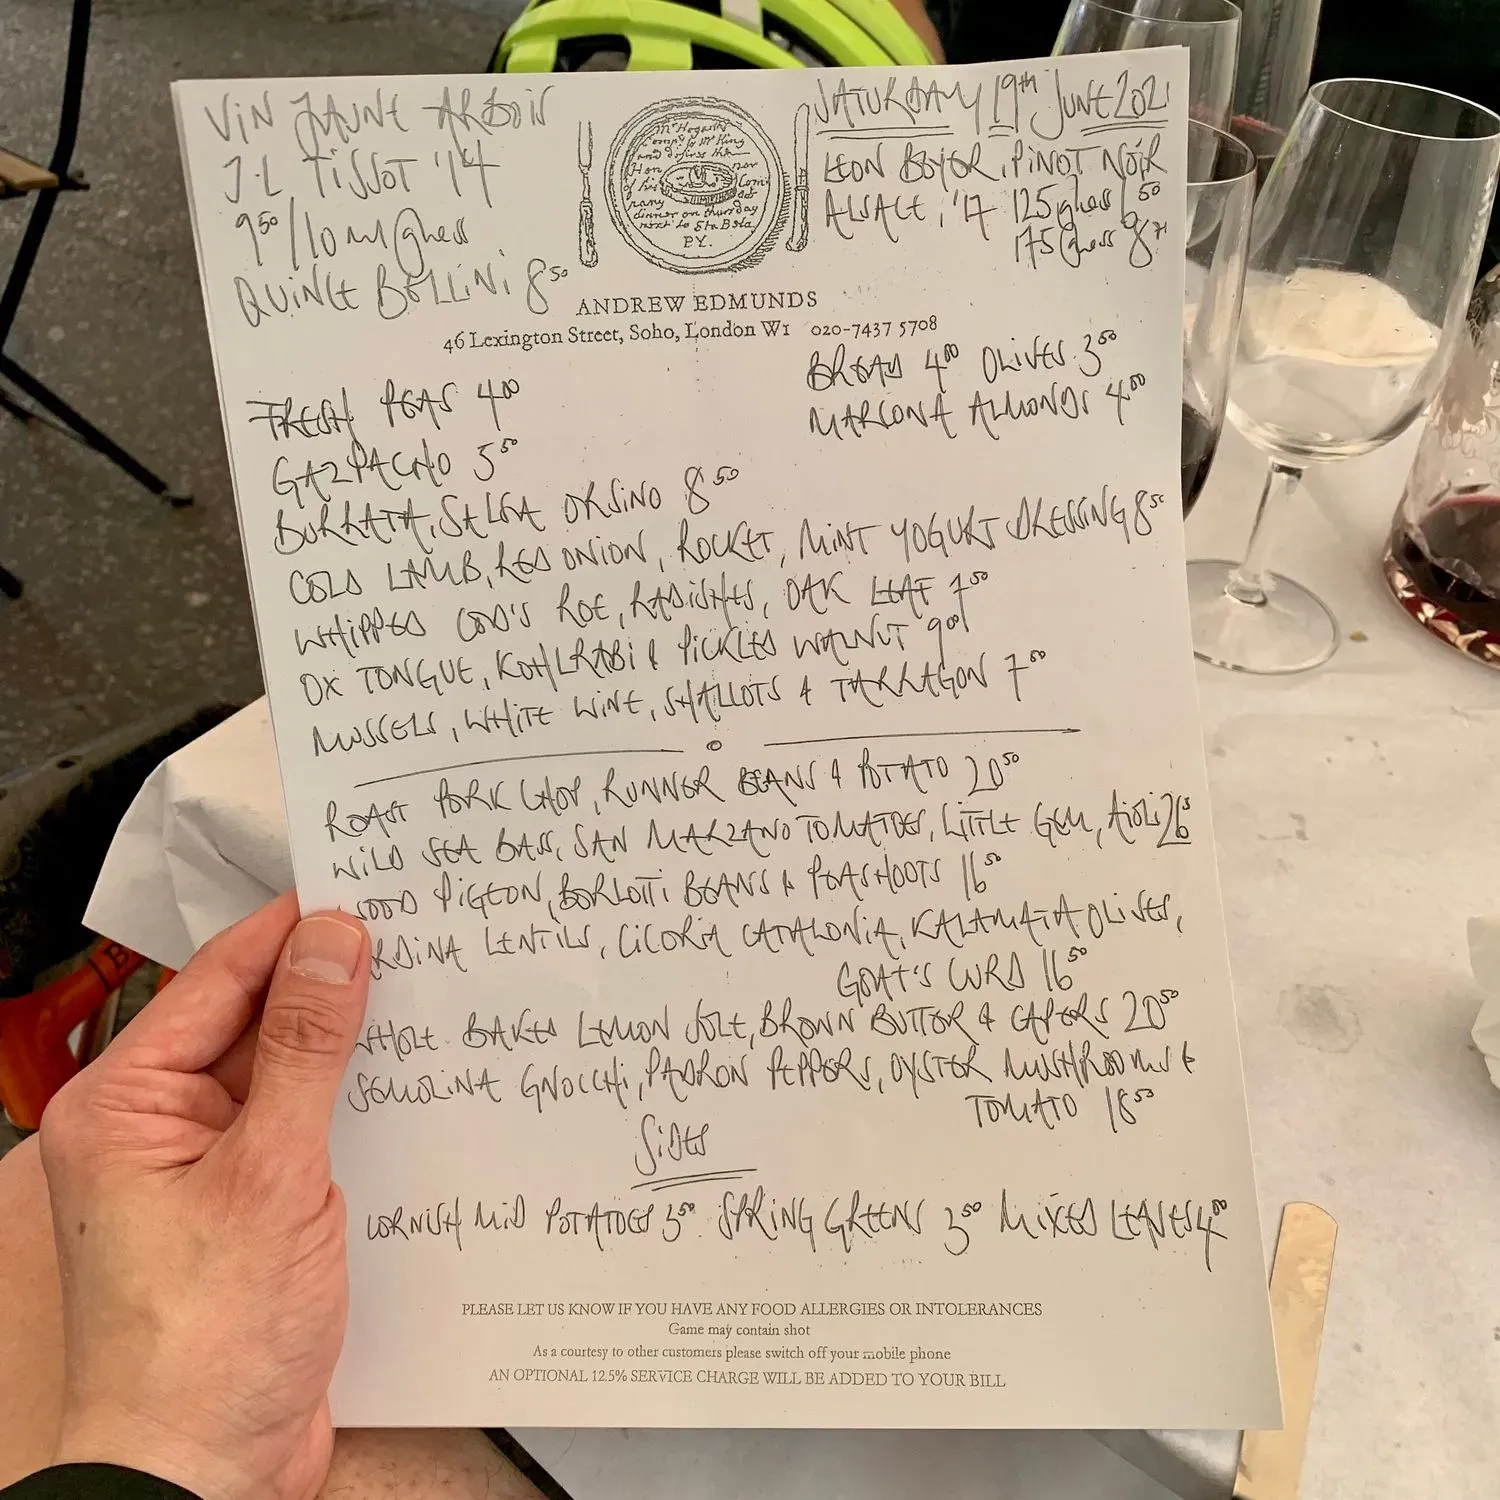 VIN JAUNE ARBOIS
J-L TISSOT '14
9 50/10 ml glass
QUINCE BELLINI 8 50
Mr Hogarth's
Comp.ts to Mr King
and desires the
Honnor
of his Com
pany at
dinner on thursday
next to Eta Beta
PY.
SATURDAY 19th JUNE 2021
LEON BEYER, PINOT NOIR
ALSACE, '17 125 glass 6 50
175 glass 8
ANDREW EDMUNDS
46 Lexington Street, Soho, London W1 020-7437 5708
BREAD 4 00 OLIVES 3 50
MARCONA ALMONDS 4 00
FRESH PEAS 4 00
GAZPACHO 5 50
BURRATA, SALSA ORSINO 8 50
COLD LAMB, RED ONION, ROCKET, MINT YOGURT DRESSING 8 50
WHIPPED COD'S ROE, RADISHES, OAK LEAF 7 50
OX TONGUE, KOHLRABI & PICKLED WALNUT 9 00
MUSSELS, WHITE WINE, SHALLOTS & TARRAGON 7 50
ROAST PORK CHOP, RUNNER BEANS & POTATO 20 50
WILD SEA BASS, SAN MARZANO TOMATOES, LITTLE GEM, AIOLI 26
WOOD PIGEON, BORLOTTI BEANS & PEASHOOTS 16 50
RDINA LENTILS, CICORIA CATALONIA, KALAMATA OLIVES,
GOAT'S CURD 16 50
WHOLE BAKED LEMON SOLE, BROWN BUTTER & CAPERS 20 50
SEMOLINA GNOCCHI, PADRON PEPPERS, OYSTER MUSHROOMS &
TOMATO 18 50
SIDES
CORNISH MID POTATOES 3 50 SPRING GREENS 3 50 MIXED LEAVES 4 00
PLEASE LET US KNOW IF YOU HAVE ANY FOOD ALLERGIES OR INTOLERANCES
Game may contain shot
As a courtesy to other customers please switch off your mobile phone
AN OPTIONAL 12.5% SERVICE CHARGE WILL BE ADDED TO YOUR BILL